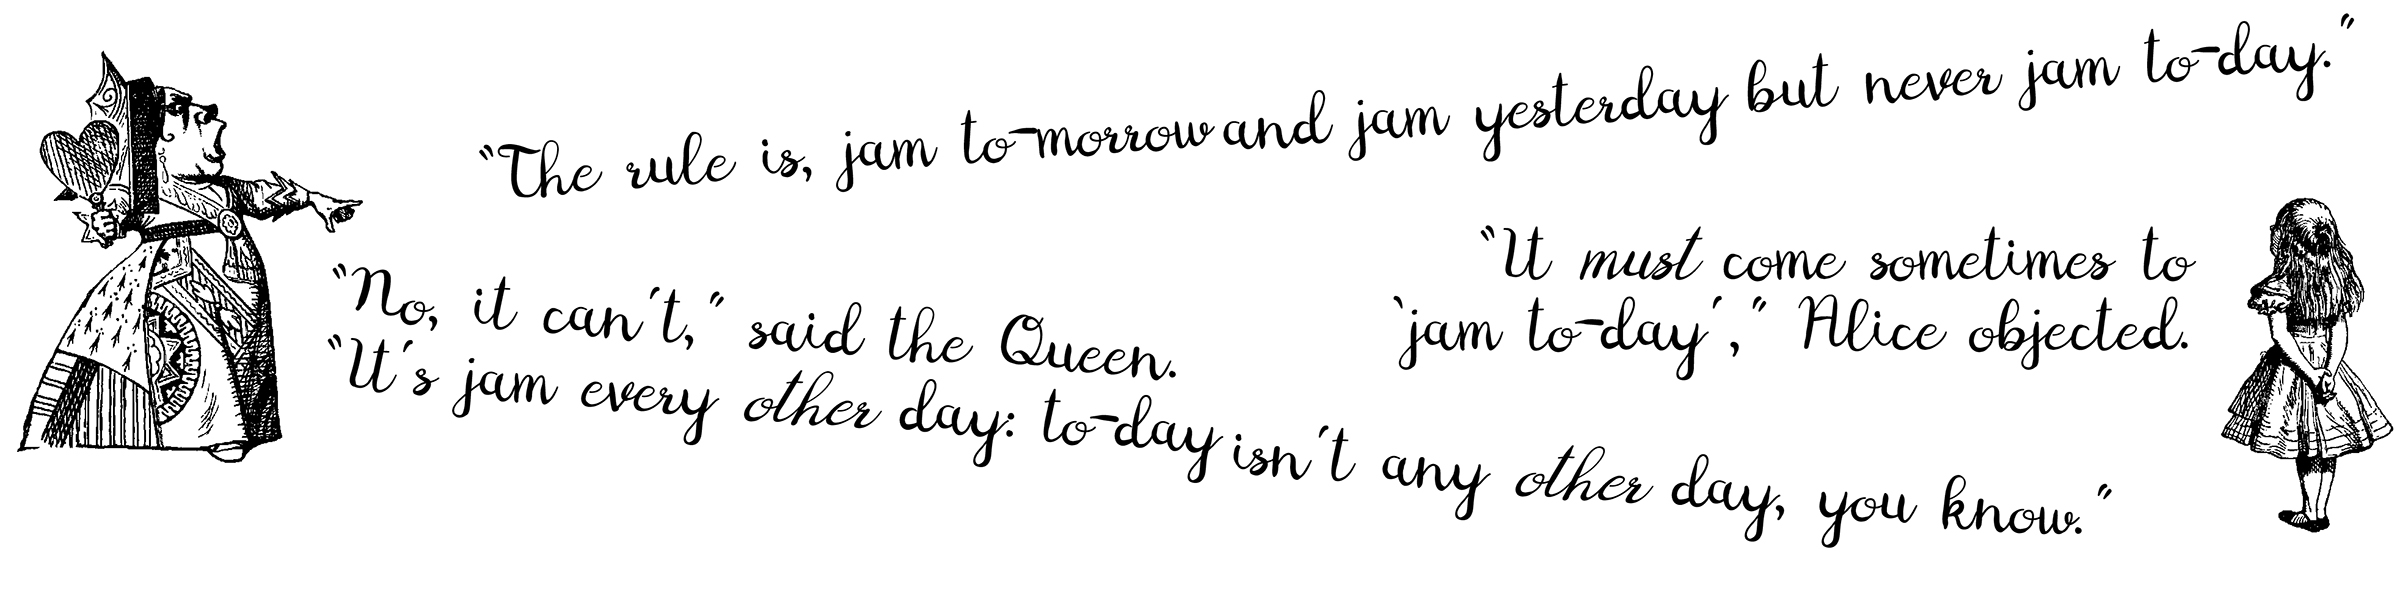 "The rule is, jam to-morrow and jam yesterday but never jam to-day."
"It must come sometimes to
`jam to-day´," Alice objected.
"No, it can´t," said the Queen.
"It´s jam every other day: to-day isn´t any other day, you know."